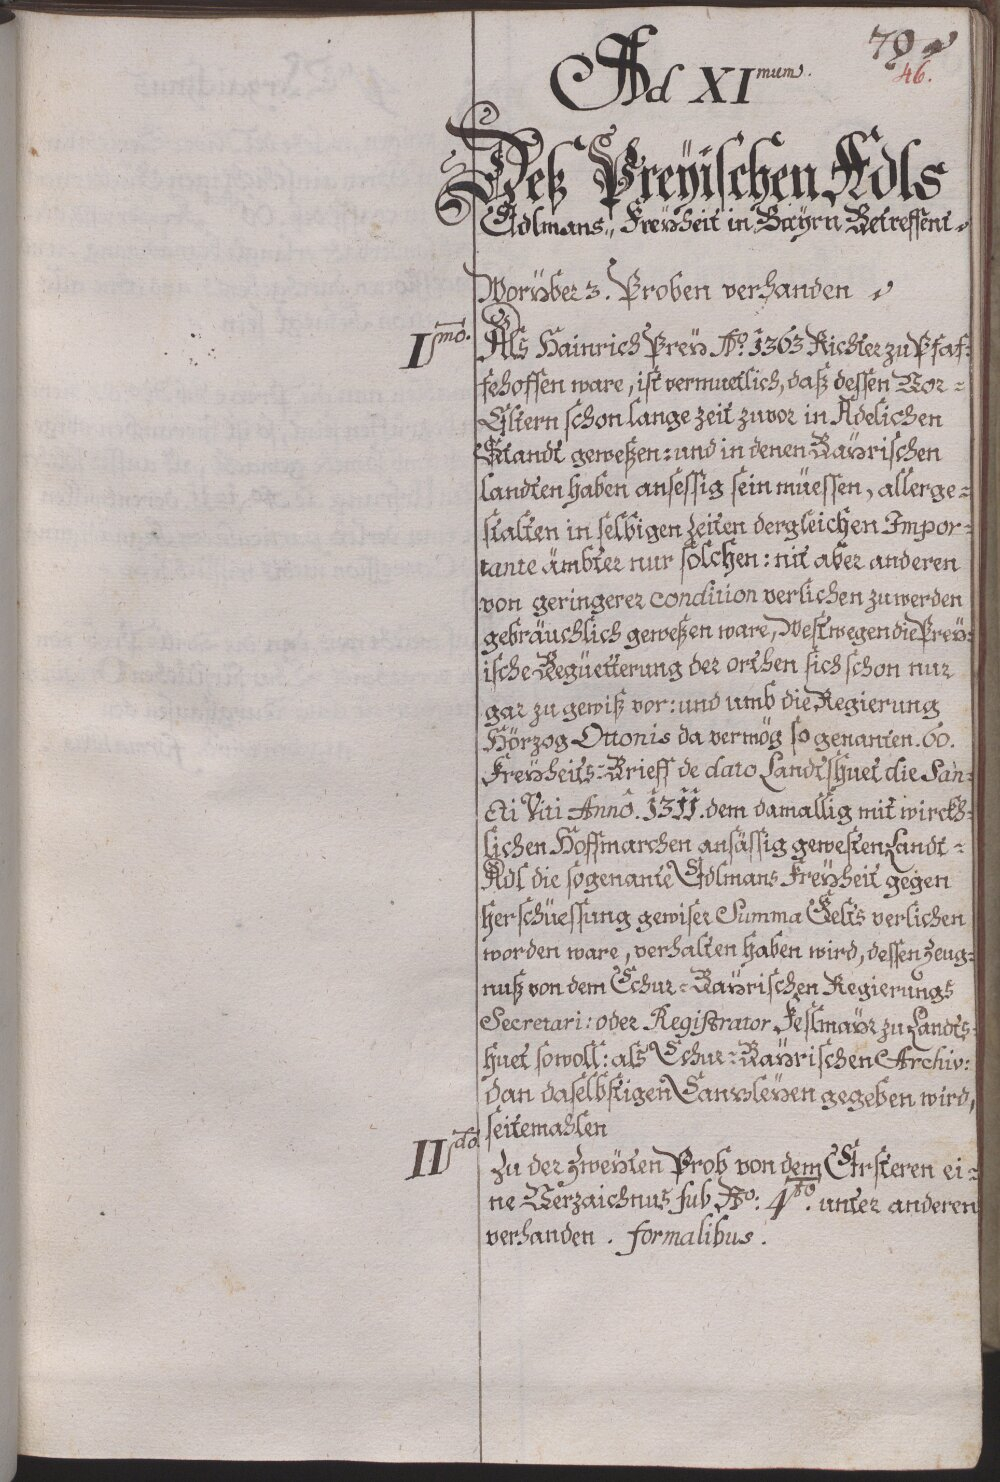 79
46.
Ad XI mum.
Deß Preÿischen Adls
Edlmans„ Freÿheit in Bayrn Betreffent
Worÿber 3. Proben verhanden
I mo. Als Hainrich Preÿ Ao. 1363 Richter zu Pfaf-
fehoffen ware, ist vermuetlich, daß dessen Vor=
Eltern schon lange zeit zuvor in Adelichen
Standt geweßen: und in denen Baÿrischen
landten haben ansessig sein müessen, allerge=
stalten in selbigen Zeiten dergleichen Impor=
tante ämbter nur solchen: nit aber anderen
von geringerer condition verlichen zu werden
gebräuchlich geweßen ware, Westwegen die Preÿ=
ische Begüetterung der orthen sich schon nur
gar zu gewiß vor: und umb die Regierung
Hörzog Ottonis da vermög so genanten. 60.
Freÿheits=Brieff de dato Landtshuet die San=
cti Viti Anno. 1311. dem damallig mit wirckh=
lichen Hoffmarchen ansässig gewesten Landt=
Adl die sogenante Edlmans Freÿheit gegen
herschüessung gewiser Summa Gelts verlichen
worden ware, verhalten haben wird, dessen Zeug=
nuß von dem Chur=Baÿrischen Regierungs
Secretari: oder Registrator Feslmaÿr zu Landts=
huet sowoll: als Chur=Baÿrischen Archiv:
dan daselbstigen Canzleÿen gegeben wird,
seitemahlen
II do. Zu der Zweÿten Prob von dem Ersteren ei=
ne Verzaichnus sub No: 4to. unter anderen
verhanden. formalibus.